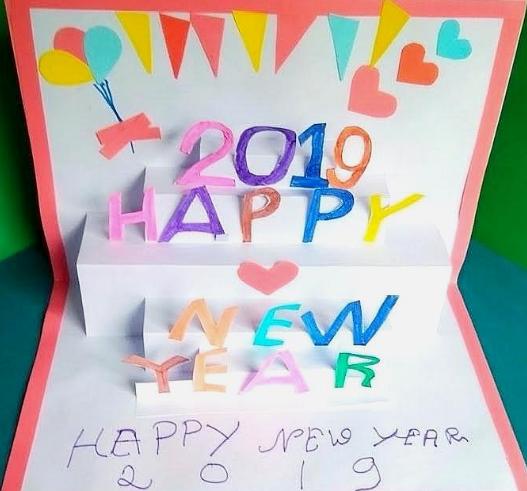 2019
HAPPY
NEW
YEAR
HAPPY NEW YEAR
2 0 1 9